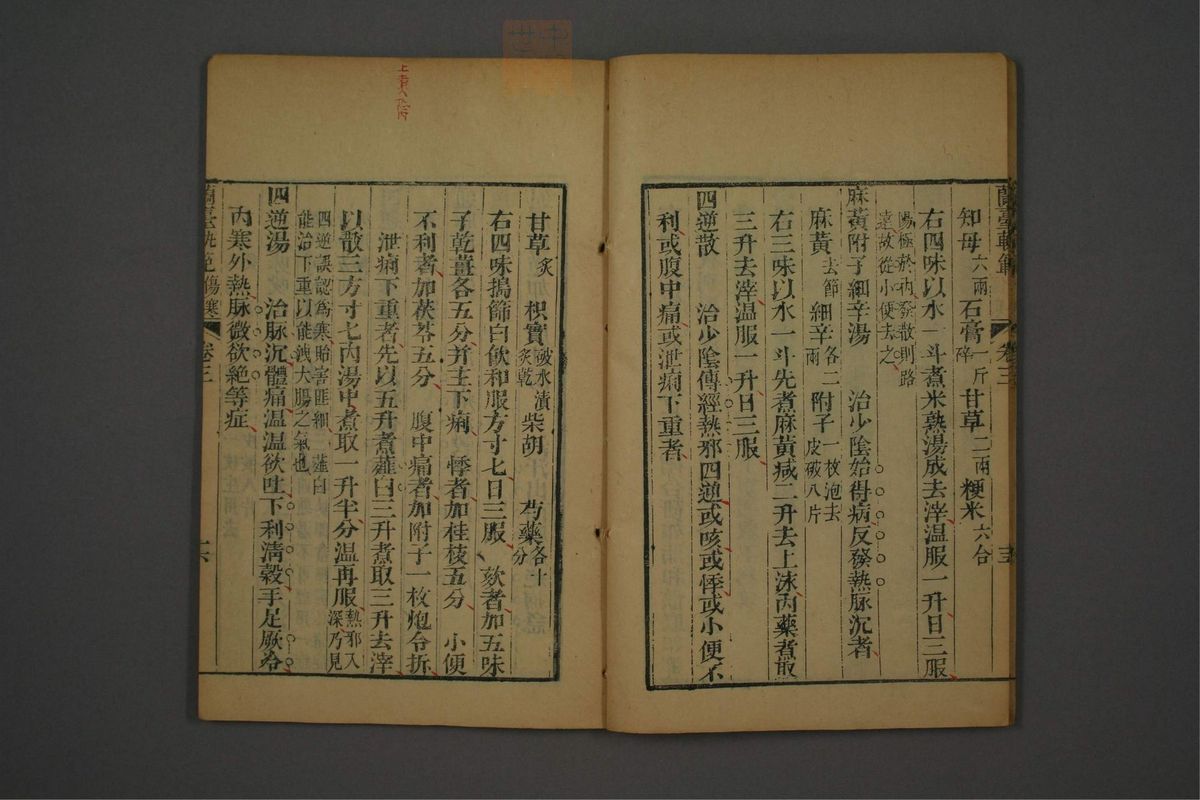 知母六兩 石膏一斤碎 甘草二兩 粳米六合
右四味以水一斗煮米熟湯成去滓温服一升日三服
陽極於内發散則路
遠故從小便去之
麻黃附子細辛湯 治少陰始得病反發熱脉沉者
麻黃去節 細辛各二兩 附子一枚泡去皮破八片
右三味以水一斗先煮麻黃减二升去上沫内藥煮取
三升去滓温服一升日三服
四逆散 治少陰傳經熱邪四逆或咳或悸或小便不
利或腹中痛或泄痢下重者
甘草炙 枳實破水漬炙乾 柴胡 芍藥各十分
右四味搗篩白飲和服方寸七日三服 欬者加五味
子乾薑各五分并主下痢 悸者加桂枝五分 小便
不利者加茯苓五分 腹中痛者加附子一枚炮令拆
泄痢下重者先以五升煮薤白三升煮取三升去滓
以散三方寸七内湯中煮取一升半分温再服熱邪入深乃見
四逆誤認爲寒貽害匪細 薤白
能治下重以能洩大腸之氣也
四逆湯 治脉沉體痛温温欲吐下利清穀手足厥冷
内寒外熱脉微欲絶等症
蘭臺軌範傷寒 卷三